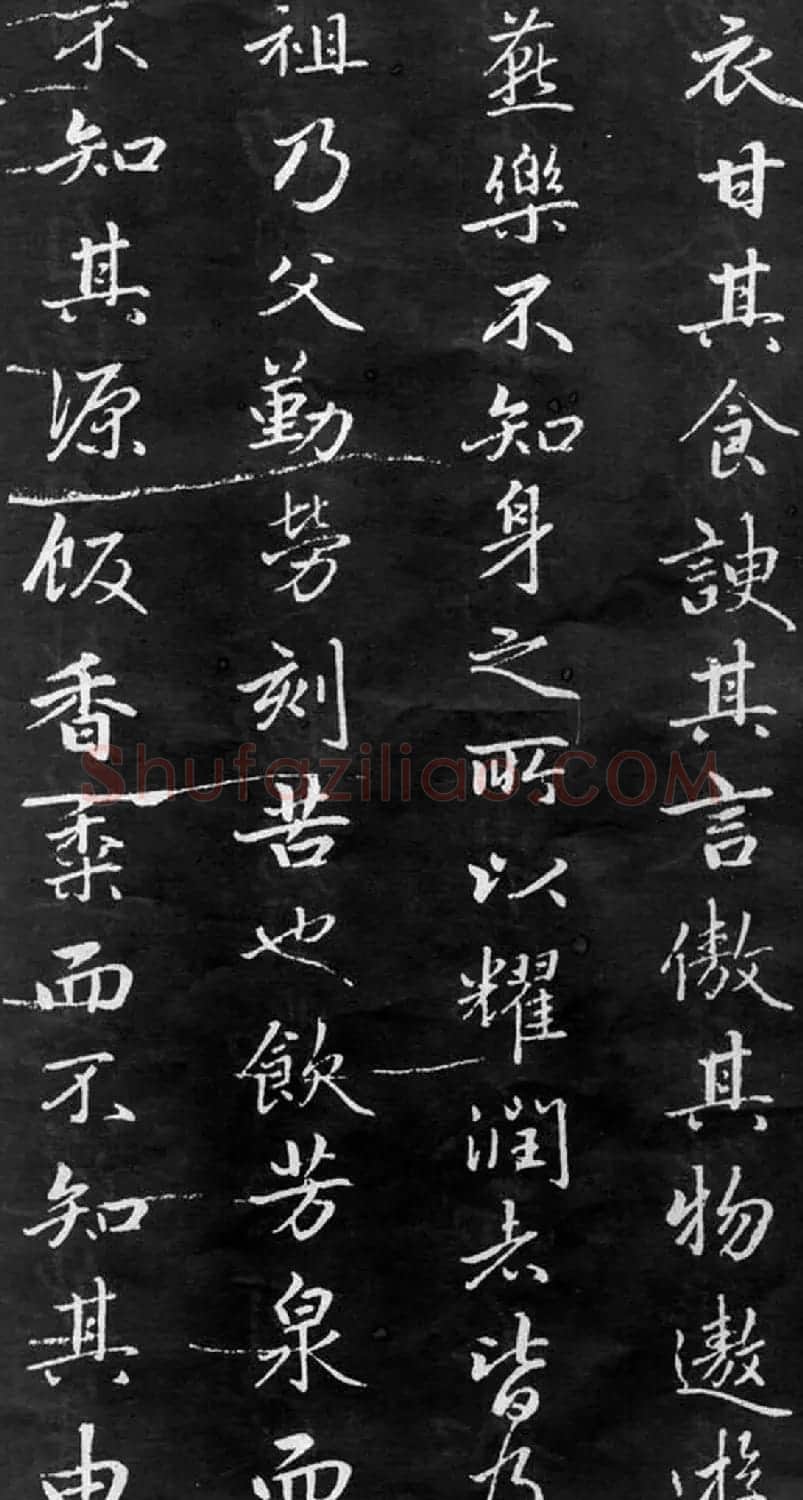 衣甘其食諛其言傲其物遨游
燕樂不知身之所以耀潤者皆乃
祖乃父勤勞刻苦也飲芳泉而
不知其源飯香黍而不知其由
Shufaziliao.COM